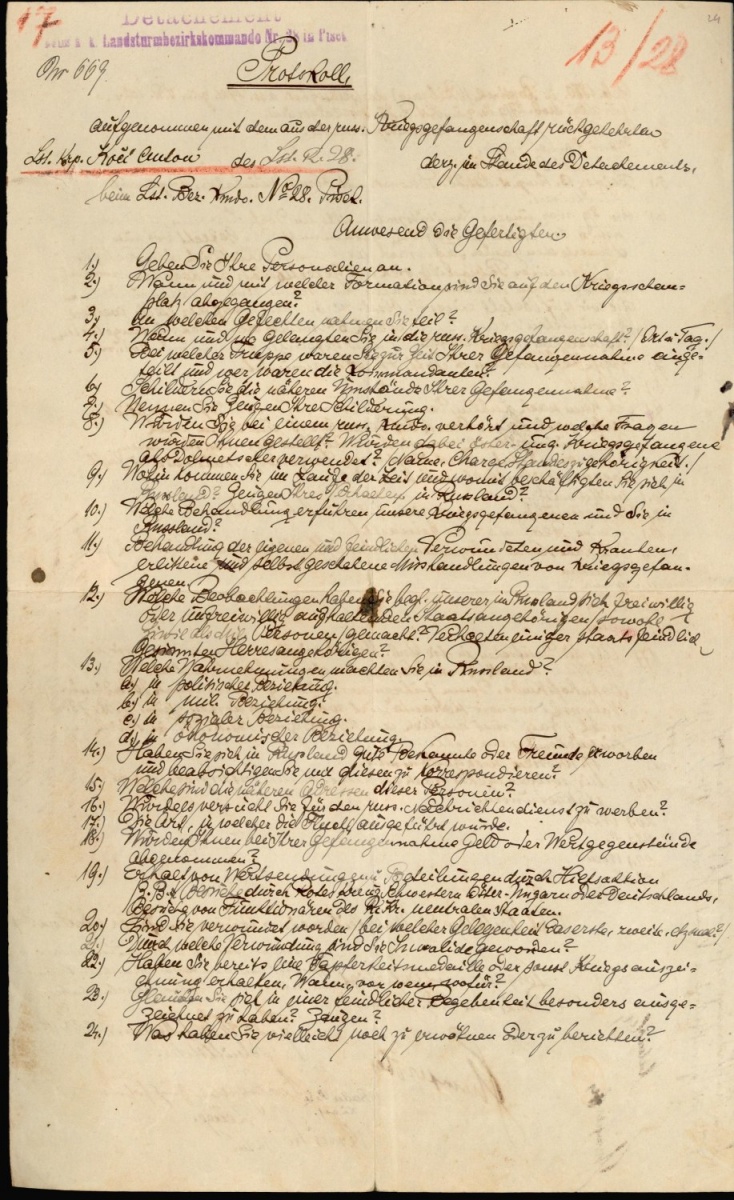 17
Detachement
beim k. k. Landsturmbezirkskommando Nr. 28 in Pisek
13/28
24
Nr 669
Protokoll,
aufgenommen mit dem aus der russ. Kriegsgefangenschaft rückgekehrten
Lst. Anton des Lst. R. 28. derz. im Stande des Detachements,
beim Lst. Bez. Kmdo. No 28. Pisek.
Anwesend die Gefertigten.
1.) Geben Sie Ihre Personalien an.
2.) Wann und mit welcher Formation sind Sie auf den Kriegsschau-
platz abgegangen?
3.) An welchen Gefechten nahmen Sie teil?
4.) Wann und wo gelangten Sie in die russ. Kriegsgefangenschaft? / Ort u. Tag./
5.) Bei welcher Truppe waren Sie zur Zeit Ihrer Gefangennahme einge-
teilt und wer waren die Kommandanten?
6.) Schildern Sie die näheren Umstände Ihrer Gefangennahme?
7.) Nennen Sie Zeugen Ihre Schilderung.
8.) Wurden Sie bei einem russ. Kmdo. verhört und welche Fragen
wurden Ihnen gestellt? Wurden dabei öster.-ung. Kriegsgefangene
als Dolmetscher verwendet? / Name, Charge, Standeszugehörigkeit./
9.) Wohin kommen Sie im Laufe der Zeit und womit beschäftigten Sie sich in
Russland? Zeugen Ihres Verhalten in Russland?
10.) Welche Behandlung erfuhren unsere Kriegsgefangenen und Sie in
Russland?
11.) Behandlung der eigenen und feindlichen Verwundeten und Kranken,
erlittene und selbst gesehene Misshandlungen von Kriegsgefan-
genen.
12.) Welche Beobachtungen haben Sie bezl. unserer in Russland sich freiwillig
oder unfreiwillig aufhaltenden Staatsangehörigen / sowohl
Zivil als Personen / gemacht? Verhalten einiger staatsfeindlich
gesinnten Heeresangehörigen?
13.) Welche Wahrnehmungen machten Sie in Russland?
a.) in politischer Beziehung.
b.) in mil. Beziehung.
c.) in sozialer Beziehung.
d.) in ökonomischer Beziehung.
14.) Haben Sie sich in Russland gute Bekannte oder Freunde erworben
und beabsichtigen Sie mit diesen zu korrespondieren?
15.) Welche sind die näheren Adressen dieser Personen?
16.) versucht Sie zu den russ. Nachrichtendienst zu werben?
17.) Die Art, in welcher die Flucht ausgeführt wurde.
18.) Wurden Ihnen bei Ihrer Gefangennahme Geld oder Wertgegenstände
abgenommen?
19.) Erhalt von Wertsendungen Beteilungen durch Hilfsaktion
z. B. Besuche durch Rotes Kreuz Schwestern Öster.-Ungarn oder Deutschlands,
Besuche von Funktionären des R. Kr. neutralen Staaten.
20.) Sind Sie verwundet worden / bei welcher Gelegenheit das erste, zweite, etz mal? /
21.) Durch welche Verwundung sind Sie Invalide geworden?
22.) Haben Sie bereits eine Tapferkeitsmedaille oder sonst Kriegsauszei-
chnung erhalten, Wann, vor wem, wofür?
23.) Glaubten Sie sich in einer feindlichen Begebenheit besonders ausge-
zeichnet zu haben? Zeugen?
24.) Was haben Sie vielleicht noch zu erwähnen oder zu berichten?